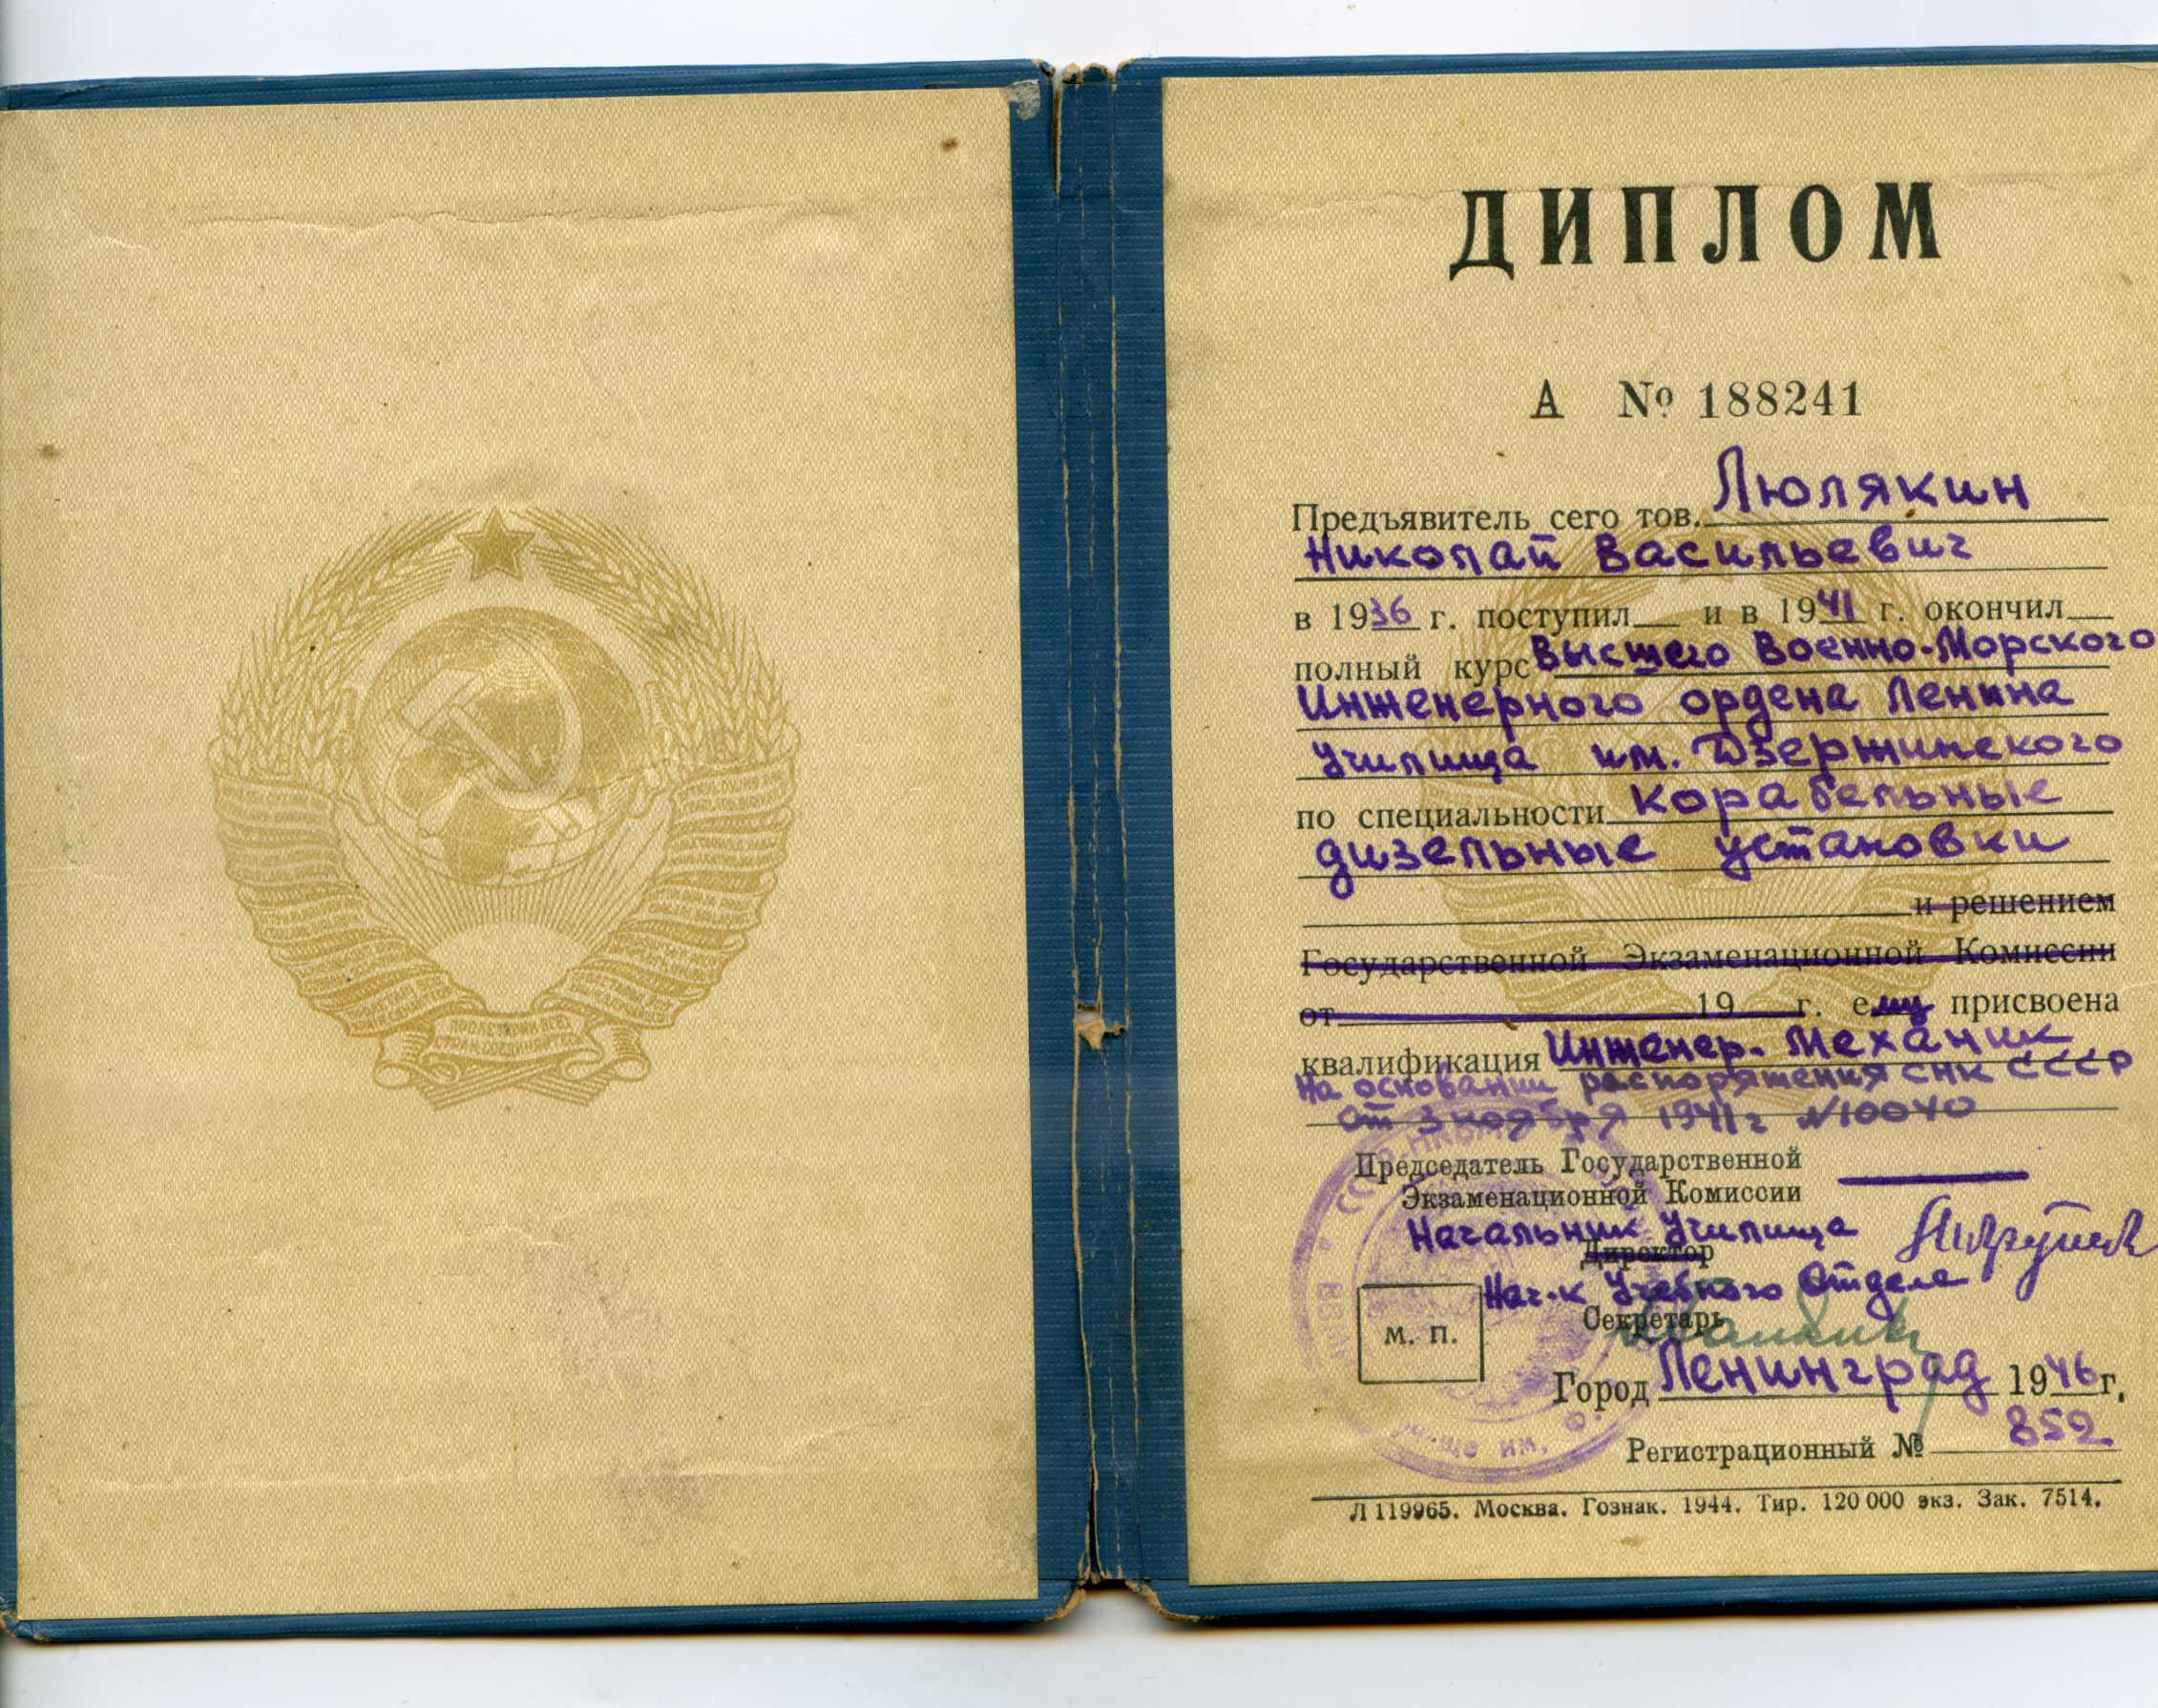 ПРОЛЕТАРИИ ВСЕХ
СТРАН, СОЕДИНЯЙТЕСЬ
ДИПЛОМ
А № 188241
Предъявитель сего тов. Люлякин
Николай Васильевич
в 1936 г. поступил и в 1941 г. окончил
полный курс Высшего Военно-Морского
Инженерного ордена Ленина
Училища им. Дзержинского
по специальности корабельные
дизельные установки
и решением
Государственной Экзаменационной Комиссии
от 19 г. ему присвоена
квалификация Инженер-Механик
На основании распоряжения СНК СССР
от 3 ноября 1941 г N10040
Председатель Государственной
Экзаменационной Комиссии
Начальник Училища
Директор
Нач-к Учебного Отдела
Секретарь
М. П.
Город Ленинград 1946 г.
Регистрационный № 852
Л 119965. Москва. Гознак. 1944. Тир. 120 000 экз. Зак. 7514.